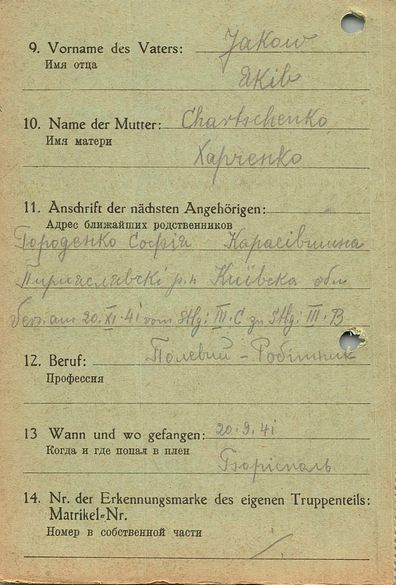 9. Vorname des Vaters: Jakow
Имя отца
Якiв
10. Name der Mutter: Chartschenko
Имя матери
Харченко
11. Anschrift der nächsten Angehörigen:
Адрес ближайших родственников
Городенко Софія Карасівщина
р-н Київска обл
Vers. am 20. XI. 41 vom Stlg: III. C. zu Stlg: III. B
12. Beruf: Полевий - Робітник
Профессия
13 Wann und wo gefangen: 20.9.41
Когда и где попал в плен
Боріспаль
14. Nr. der Erkennungsmarke des eigenen Truppenteils:
Matrikel-Nr.
Номер в собственной части